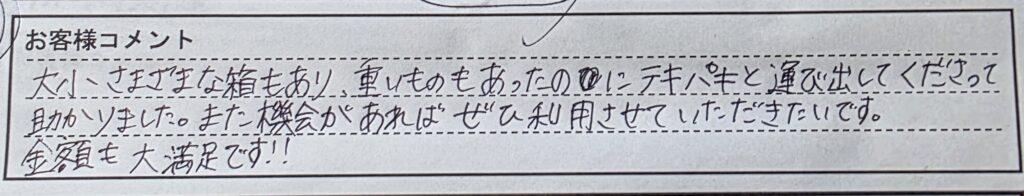 お客様コメント
大小さまざまな箱もあり、重いものもあったのにテキパキと運び出してくださって
助かりました。また機会があればぜひ利用させていただきたいです。
金額も大満足です!!